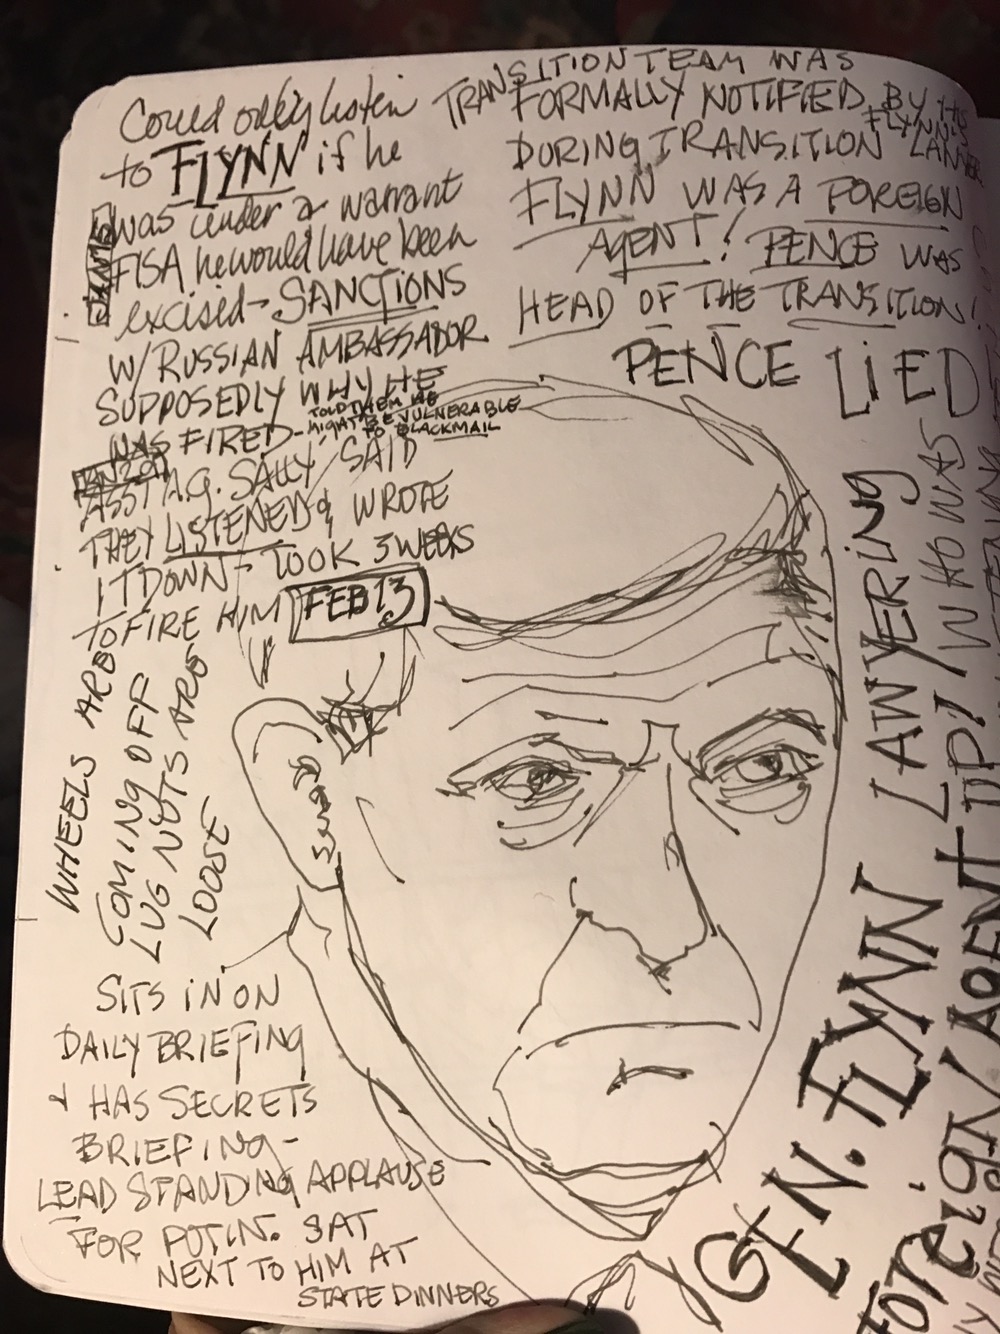 Could only listen
to FLYNN if he
was under a warrant
FISA he would have been
excised - SANCTIONS
W/ RUSSIAN AMBASSADOR
SUPPOSEDLY WHY HE
WAS FIRED -
TOLD THEM HE
MIGHT BE VULNERABLE
TO BLACKMAIL
ASST A.G. SALLY SAID
THEY LISTENED & WROTE
IT DOWN - TOOK 3 WEEKS
TO FIRE HIM FEB 13
TRANSITION TEAM WAS
FORMALLY NOTIFIED BY
FLYNN'S
DURING TRANSITION
FLYNN WAS A FOREIGN
AGENT! PENCE WAS
HEAD OF THE TRANSITION!
PENCE LIED
WHEELS ARE
COMING OFF
LUG NUTS ARE
LOOSE
SITS IN ON
DAILY BRIEFING
& HAS SECRETS
BRIEFING -
LEAD STANDING APPLAUSE
FOR POTIN. SAT
NEXT TO HIM AT
STATE DINNERS
GEN. FLYNN LAWYERING
FOREIGN AGENT UP! WHO WAS